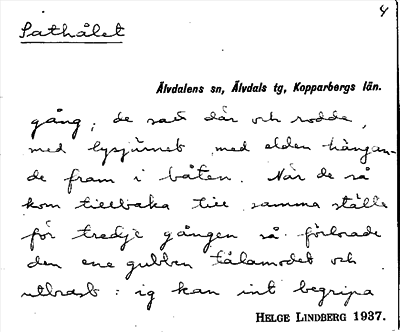 4
Såthålet
Älvdalens sn, Älvdals tg, Kopparbergs län.
gång; de satt där och rodde,
med lysjärnet med elden hängan-
de fram i båten. När de så
kom tillbaka till samma ställe
för tredje gången så förlorade
den ene gubben tålamodet och
utbrast: ig kan int begripa
HELGE LINDBERG 1937.